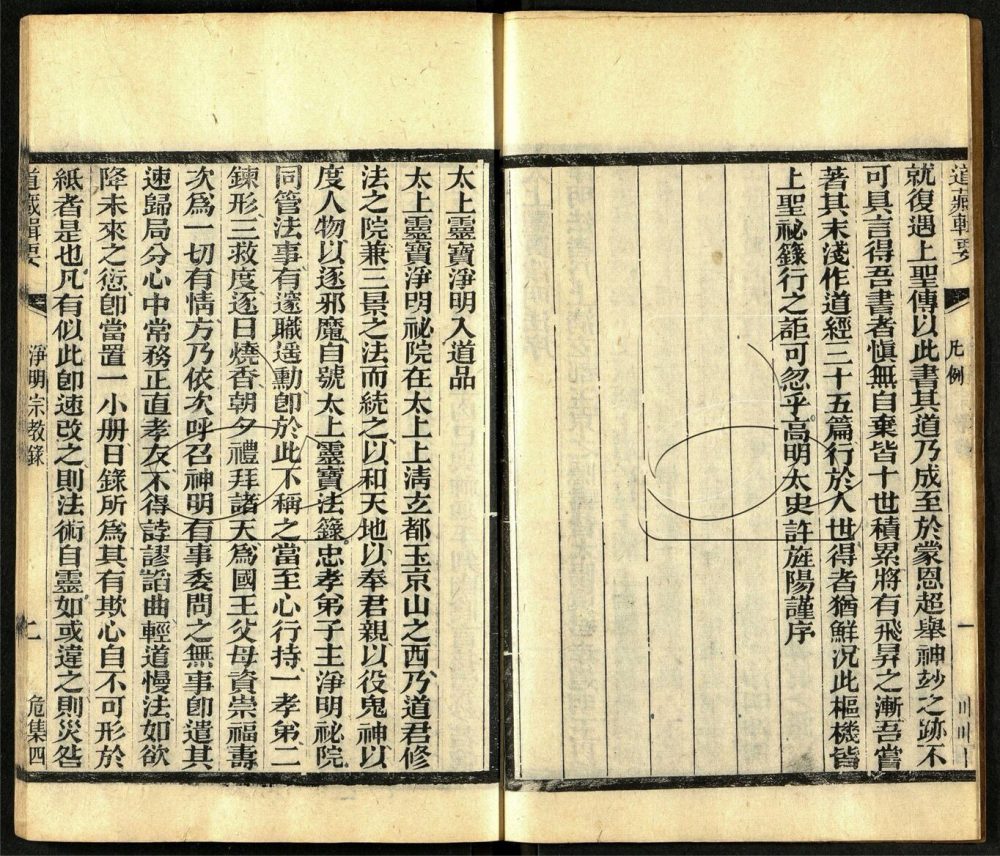 道藏輯要
凡例
一
就復遇上聖傳以此書其道乃成至於蒙恩超舉神妙之跡不
可具言得吾書者愼無自棄皆十世積累將有飛昇之漸吾嘗
著其末淺作道經二十五篇行於人世得者猶鮮況此樞機皆
上聖祕籙行之詎可忽乎高明太史許旌陽謹序
太上靈寶淨明入道品
太上靈寶淨明祕院在太上上淸玄都玉京山之西乃道君修
法之院兼三景之法而統之以和天地以奉君親以役鬼神以
度人物以逐邪魔自號太上靈寶法籙忠孝弟子主淨明祕院
同管法事有邃職遥勳卽於此不稱之當至心行持一孝弟二
鍊形三救度逐日燒香朝夕禮拜諸天爲國王父母資崇福壽
次爲一切有情方乃依次呼召神明有事委問之無事卽遣其
速歸局分心中常務正直孝友不得誖謬諂曲輕道慢法如欲
降未來之愆卽當置一小册日錄所爲其有欺心自不可形於
紙者是也凡有似此卽速改之則法術自靈如或違之則災咎
道藏輯要
淨明宗教錄
危集四